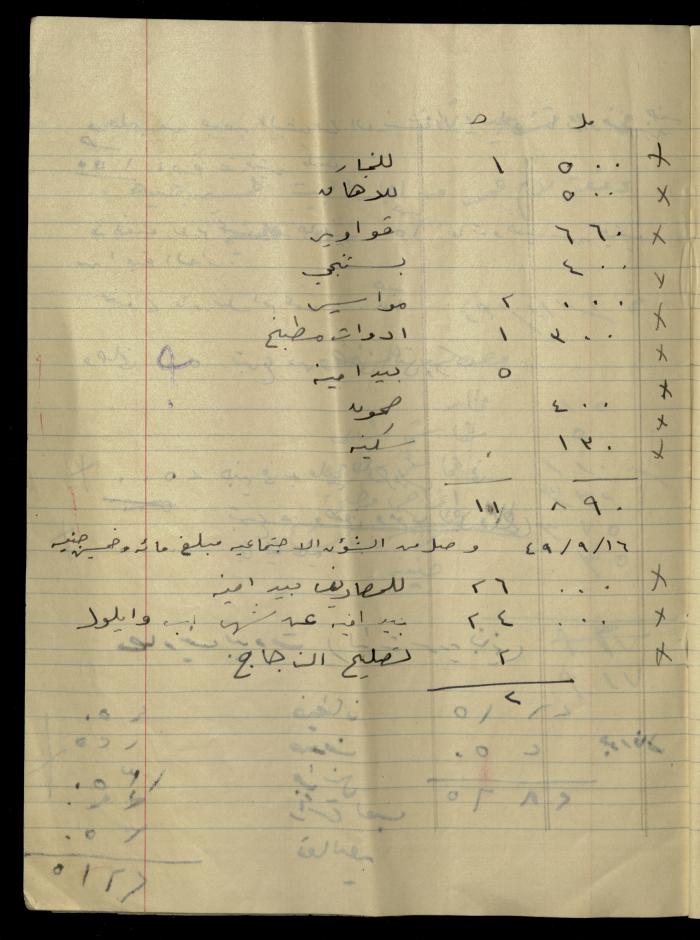 مل ج
× ٥٠٠ ١ للنجار
× ٥٠٠ للدهان
× ٦٦٠ قوارير
× ٤٠٠
× ٠٠٠ ٢ مواسير
× ٣٠٠ ١ ادوات مطبخ
× ٥ بيد امينه
× ٤٠٠ صحون
× ١٣٠ سكينه
٨٩٠ ١١
٤٩/٩/١٦ وصل من الشؤن الاجتماعيه مبلغ مائه وخمسين جنيه
× ٠٠٠ ٢٦ للمصاريف بيد امينه
× ٠٠٠ ٢٤ بيد امينه عن شهر اب وايلول
× ٢ تصليح الزجاج